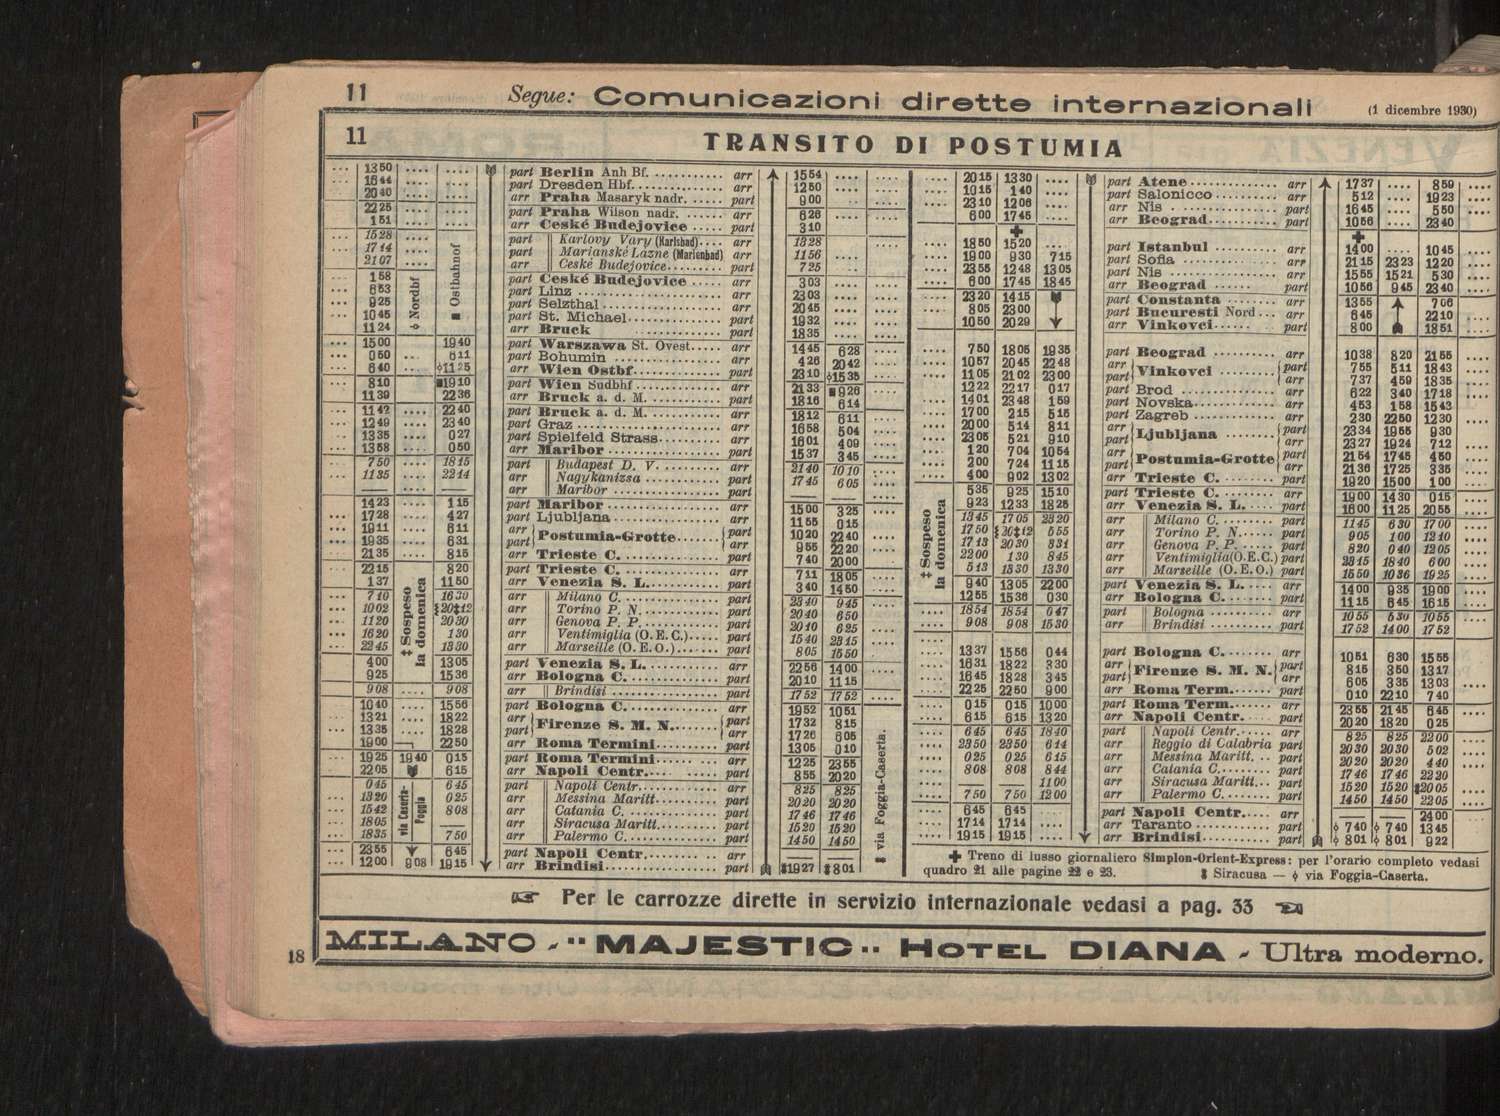 11 Segue: Comunicazioni dirette internazionali (1 dicembre 1930)
11 TRANSITO DI POSTUMIA
... 13 50 .... .... part Berlin Anh Bf. arr 15 54 .... ....
... 16 44 .... .... part Dresden Hbf. arr 12 50 .... ....
... 20 40 .... .... arr Praha Masaryk nadr. part 9 00 .... ....
... 22 25 part Praha Wilson nadr. arr 6 26 .... ....
... 1 51 arr České Budejovice part 3 10
15 28 .... part Karlovy Vary (Karlsbad) arr 18 28 ....
17 14 .... part Marianské Lazne (Marienbad) arr 11 56
21 07 .... arr České Budejovice part 7 25
1 58 part České Budejovice arr 3 03
6 53 part Linz arr 23 03
9 25 part Selzthal arr 20 45
10 45 part St. Michael part 19 32
11 24 arr Bruck part 18 35
◊ Nordbf
■ Ostbahnof
15 00 19 40 part Warszawa St. Ovest arr 14 45 6 28
0 50 6 11 part Bohumin arr 4 26 20 42
6 40 ◊11 25 arr Wien Ostbf. part 23 10 ◊15 35
8 10 ■19 10 part Wien Sudbhf arr 21 33 ■9 26
11 39 22 36 arr Bruck a. d. M. part 18 16 6 14
11 42 .... 22 40 part Bruck a. d. M. arr 18 12 6 11
12 49 .... 23 40 part Graz arr 16 58 5 04
13 35 .... 0 27 part Spielfeld Strass arr 16 01 4 09
13 58 .... 0 50 arr Maribor part 15 37 3 45
7 50 .... 18 15 part Budapest D. V. arr 21 40 10 10
11 35 .... 22 14 arr Nagykanizsa part 17 45 6 05
arr Maribor part
14 23 1 15 part Maribor arr 15 00 3 25
17 28 4 27 part Ljubljana arr 11 55 0 15
19 11 6 11 arr Postumia-Grotte part 10 20 22 40
19 35 6 31 part arr 9 55 22 20
21 35 8 15 arr Trieste C. part 7 40 20 00
22 15 8 20 part Trieste C. arr 7 11 18 05
1 37 11 50 arr Venezia S. L. part 3 40 14 50
7 10 16 30 arr Milano C. part 23 40 9 45
10 02 20‡12 arr Torino P. N. part 20 40 6 50
11 20 20 30 arr Genova P. P. part 20 10 6 25
16 20 1 30 arr Ventimiglia (O.E.C.) part 15 40 23 15
22 45 13 30 arr Marseille (O.E.O.) part 8 05 15 50
‡ Sospeso la domenica
4 00 13 05 part Venezia S. L. arr 22 56 14 00
9 25 15 36 arr Bologna C. part 20 10 11 15
9 08 .... 9 08 arr Brindisi part 17 52 17 52
10 40 .... 15 56 part Bologna C. arr 19 52 10 51
13 21 .... 18 22 arr Firenze S. M. N. part 17 32 8 15
13 35 .... 18 28 part arr 17 26 6 05
19 00 22 50 arr Roma Termini part 13 05 0 10
19 25 19 40 0 15 part Roma Termini arr 12 25 23 55
22 05 6 15 arr Napoli Centr. part 8 55 20 20
0 45 6 45 part Napoli Centr. arr 8 25 8 25
13 20 0 25 arr Messina Maritt. part 20 20 20 20
15 42 8 08 arr Catania C. part 17 46 17 46
18 05 arr Siracusa Maritt. part 15 20 15 20
18 35 7 50 arr Palermo C. part 14 50 14 50
via Caserta-Foggia
23 55 6 45 part Napoli Centr. arr
12 00 9 08 19 15 arr Brindisi part 19 27 8 01
via Foggia-Caserta.
20 15 13 30 .... part Atene arr 17 37 .... 8 59
10 15 1 40 .... part Salonicco arr 5 12 .... 19 23
23 10 12 06 .... arr Nis part 16 45 .... 5 50
6 00 17 45 .... arr Beograd part 10 56 .... 23 40
✚ ✚
18 50 15 20 .... part Istanbul arr 14 00 .... 10 45
19 00 9 30 7 15 part Sofia arr 21 15 23 23 12 20
23 55 12 48 13 05 part Nis arr 15 55 15 21 5 30
6 00 17 45 18 45 arr Beograd part 10 56 9 45 23 40
23 20 14 15 part Constanta arr 13 55 7 06
8 05 23 00 part Bucuresti Nord arr 6 45 22 10
10 50 20 29 arr Vinkovci part 8 00 18 51
7 50 18 05 19 35 part Beograd arr 10 38 8 20 21 55
10 57 20 45 22 48 arr Vinkovci part 7 55 5 11 18 43
11 05 21 02 23 00 part arr 7 37 4 59 18 35
12 22 22 17 0 17 part Brod arr 6 22 3 40 17 18
14 01 23 48 1 59 part Novska arr 4 53 1 58 15 43
17 00 2 15 5 15 part Zagreb arr 2 30 22 50 12 30
20 00 5 14 8 11 arr Ljubljana part 23 34 19 55 9 30
23 05 5 21 9 10 part arr 23 27 19 24 7 12
1 20 7 04 10 54 arr Postumia-Grotte part 21 54 17 45 4 50
2 00 7 24 11 15 part arr 21 36 17 25 3 35
4 00 9 02 13 02 arr Trieste C. part 19 20 15 00 1 00
5 35 9 25 15 10 part Trieste C. arr 19 00 14 30 0 15
9 23 12 33 18 25 arr Venezia S. L. part 16 00 11 25 20 55
13 45 17 05 23 20 arr Milano C. part 11 45 6 30 17 00
17 50 20‡12 5 55 arr Torino P. N. part 9 05 1 00 12 10
17 13 20 30 3 31 arr Genova P. P. part 8 20 0 40 12 05
22 00 1 30 8 45 arr Ventimiglia (O.E.C.) part 23 15 18 40 6 00
5 13 15 30 13 30 arr Marseille (O.E.O.) part 15 50 10 36 19 25
‡ Sospeso la domenica
9 40 13 05 22 00 part Venezia S. L. arr 14 00 9 35 19 00
12 55 15 36 0 30 arr Bologna C. part 11 15 6 45 16 15
18 54 18 54 0 47 part Bologna arr 10 55 5 30 10 55
9 08 9 08 15 30 arr Brindisi part 17 52 14 00 17 52
13 37 15 56 0 44 part Bologna C. arr 10 51 6 30 15 55
16 31 18 22 3 30 arr Firenze S. M. N. part 8 15 3 50 13 17
16 45 18 28 3 45 part arr 6 05 3 35 13 03
22 25 22 50 9 00 arr Roma Term. part 0 10 22 10 7 40
0 15 0 15 10 00 part Roma Term. arr 23 55 21 45 6 45
6 15 6 15 13 20 arr Napoli Centr. part 20 20 18 20 0 25
6 45 6 45 18 40 part Napoli Centr. arr 8 25 8 25 22 00
23 50 23 50 6 14 arr Reggio di Calabria part 20 30 20 30 5 02
0 25 0 25 6 15 arr Messina Maritt. part 20 20 20 20 4 40
8 08 8 08 8 44 arr Catania C. part 17 46 17 46 22 20
11 00 arr Siracusa Maritt. part 15 20 15 20 20 05
7 50 7 50 12 00 arr Palermo C. part 14 50 14 50 22 05
6 45 6 45 part Napoli Centr. arr 24 00
17 14 17 14 arr Taranto part ◊ 7 40 ◊ 7 40 13 45
19 15 19 15 arr Brindisi part ◊ 8 01 ◊ 8 01 9 22
✚ Treno di lusso giornaliero Simplon-Orient-Express: per l'orario completo vedasi
quadro 21 alle pagine 22 e 23. Siracusa — ◊ via Foggia-Caserta.
☞ Per le carrozze dirette in servizio internazionale vedasi a pag. 33 ☜
MILANO - "MAJESTIC" HOTEL DIANA - Ultra moderno.
18